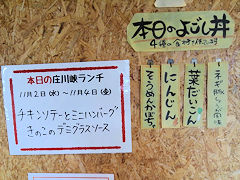 本日の庄川峡ランチ
11月2日(水)～11月4日(金)
チキンソテーとミニハンバーグ
きのこのデミグラスソース
本日のよごし丼
4種の
葉だいこん
にんじん
そうめんかぼちゃ